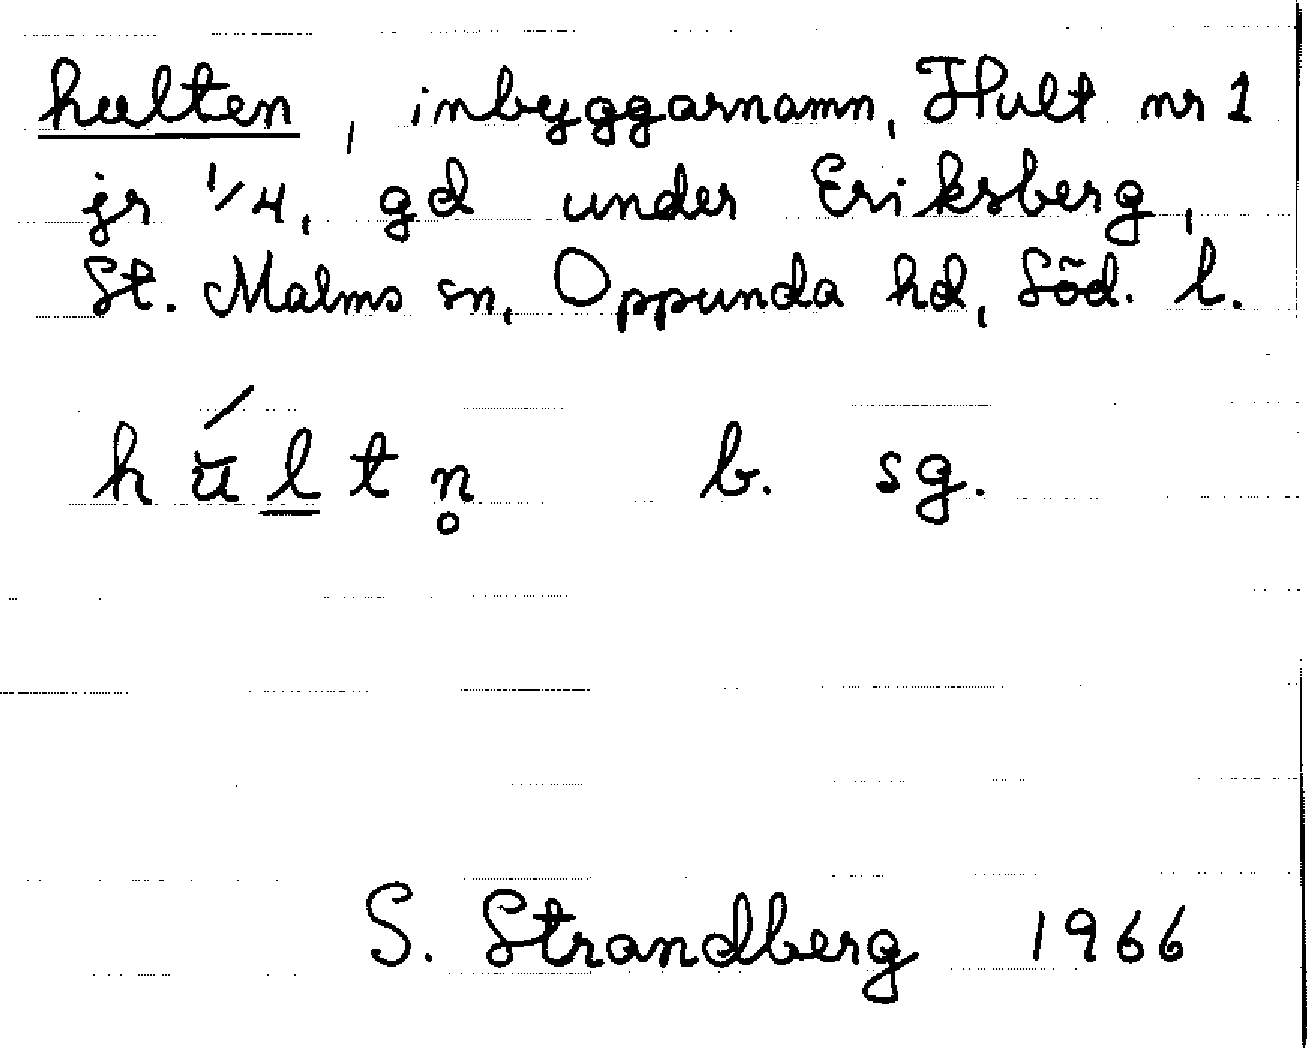 hulten, inbyggarnamn, Hult nr 1
jr 1/4, gd under Eriksberg,
St. Malms sn, Oppunda hd, Söd. l.
hú̄l̲tn̥ b. sg.
S. Strandberg 1966